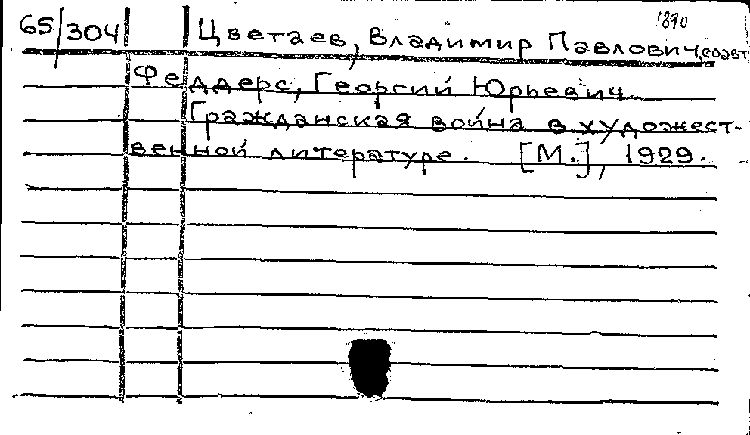 1890
65/304 Цветаев, Владимир Павлович, соавт.
Феддерс, Георгий Юрьевич.
Гражданская война в художест-
венной литературе. [М.], 1929.